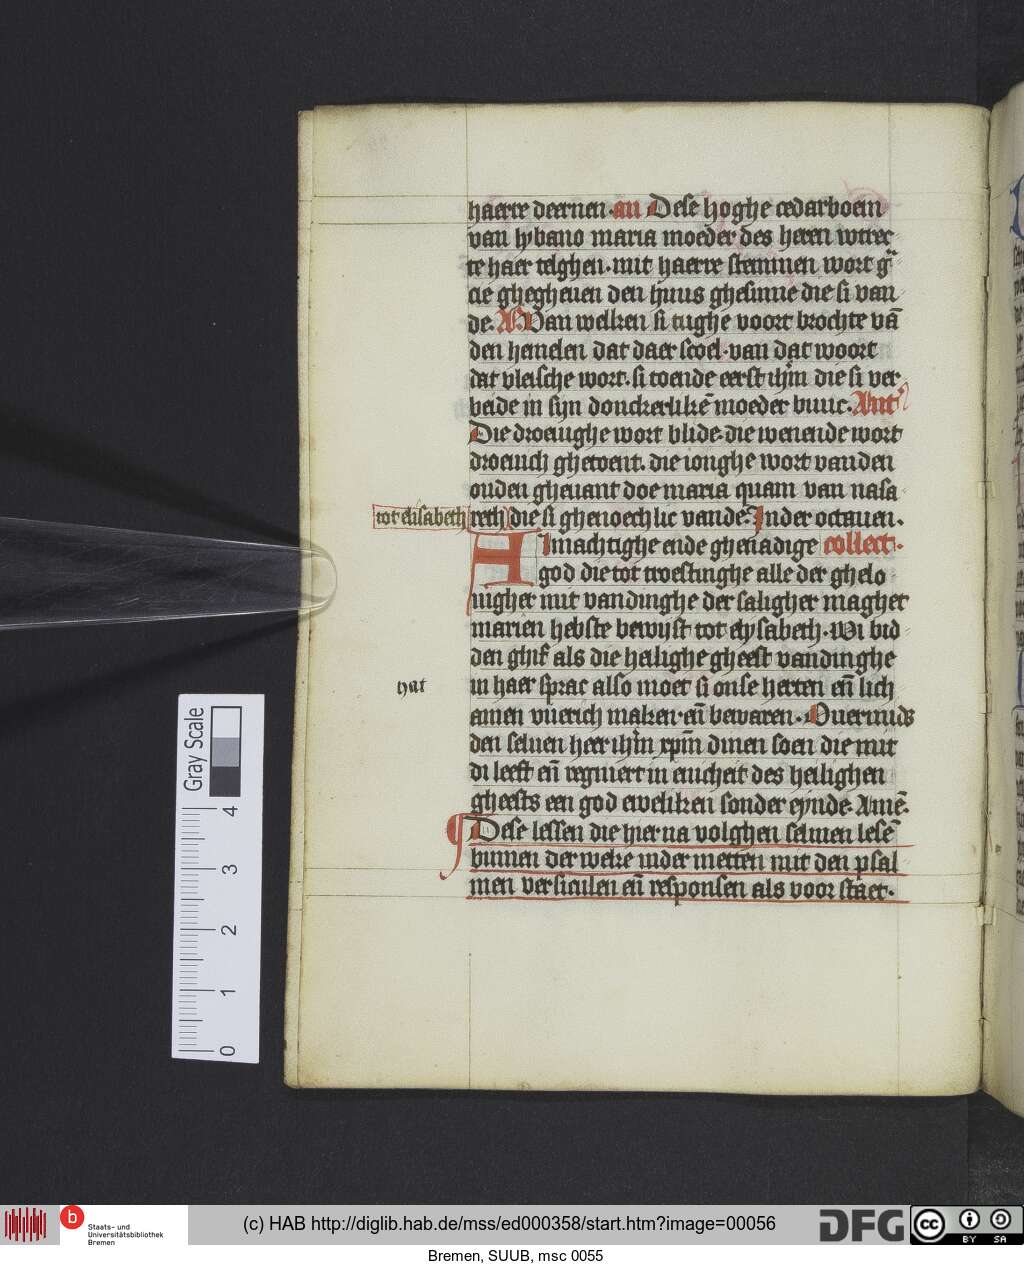 haerre deernen. an Dese hoghe cedarboem
van lybano maria moeder des heren wtrec
te haer telghen. mit haerre stemmen wort gͣ
cie ghegheuen den huus ghesinne die si van
de. Aͦ. Van welken si tughe voort brochte vā
den hemelen dat daer scoel. van dat woort
dat vleische wort. si toende eerst ih̄m die si ver
beide in syn donckerlikē moeder buuc. Ant
Die droeuighe wort blide. die wenende wort
droeuich ghetoent. die ionghe wort van den
ouden gheuant doe maria quam van nasa
tot elisabeth reth die si ghenoechlic vande. Inder octauen.
Almachtighe ende ghenadige collect.
god die tot troestinghe alle der ghelo
uigher mit vandinghe der saligher magher
marien hebste bewijst tot elysabeth. Wi bid
den ghif als die heilighe gheest vandinghe
hat
in haer sprac also moet si onse herten eñ lich
amen vuerich maken eñ bewaren. Ouermids
den seluen heer ih̄m xp̄m dinen soen die mit
di leeft eñ regniert in enicheit des heilighen
gheests een god eweliken sonder eynde. Amē.
Dese lessen die hier na volghen selmen lesē
binnen der weke inder metten mit den psal
men versiculen eñ responsen als voor staet.
Gray Scale
0 1 2 3 4
b Staats- und
Universitätsbibliothek
Bremen
(c) HAB http://diglib.hab.de/mss/ed000358/start.htm?image=00056
DFG
cc BY SA
Bremen, SUUB, msc 0055